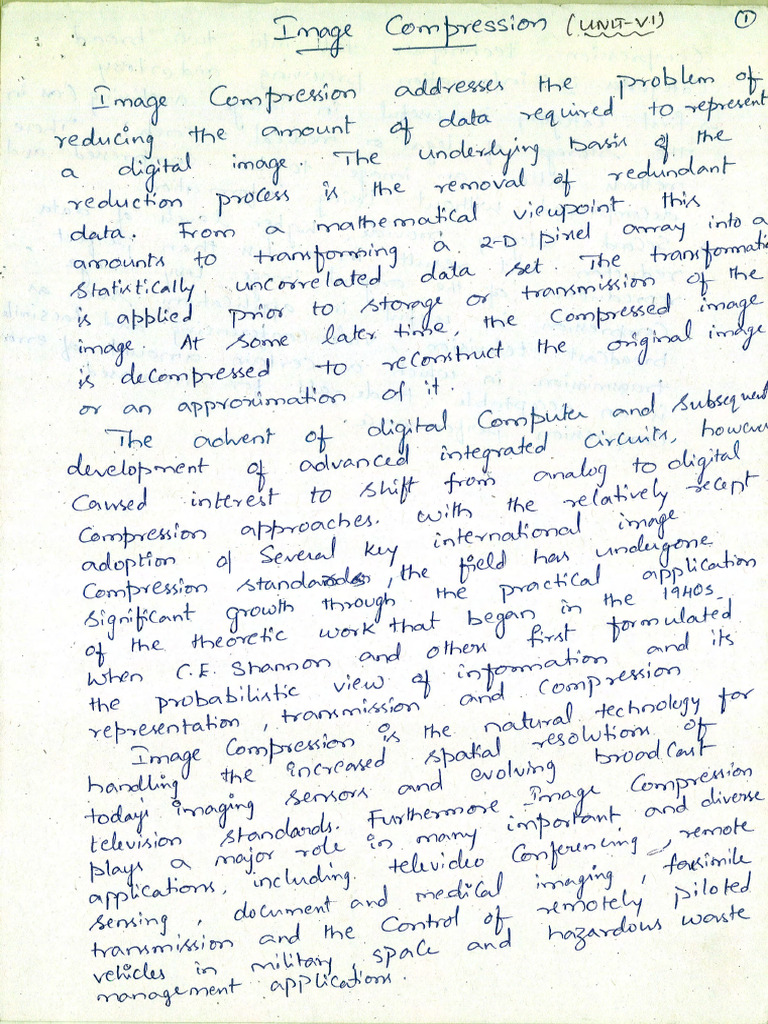 Image Compression (UNIT-VI) 1
Image Compression addresses the problem of
reducing the amount of data required to represent
a digital image. The underlying basis of the
reduction process is the removal of redundant
data. From a mathematical viewpoint, this
amounts to transforming a 2-D pixel array into a
statistically uncorrelated data set. The transformati
is applied prior to storage or transmission of the
image. At some later time, the compressed image
is decompressed to reconstruct the original image
or an approximation of it.
The advent of digital Computer and subsequent
development of advanced integrated circuits, however
Caused interest to shift from analog to digital
Compression approaches. With the relatively recept
adoption of several key international image
Compression standards, the field has undergone
significant growth through the practical application
of the theoretic work that began in the 1940s
when C.E. Shannon and others first formulated
the probabilistic view of information and its
representation, transmission and compression
Image Compression is the natural technology for
handling the increased spatial resolutions of
today's imaging sensors and evolving broadcast
television standards. Furthermore Image Compression
plays a major role in many important and diverse
applications, including televideo Conferencing, remote
sensing, document and medical imaging, facsimile
transmission and the Control of remotely piloted
vehicles in military, space and hazardous waste
management applications.